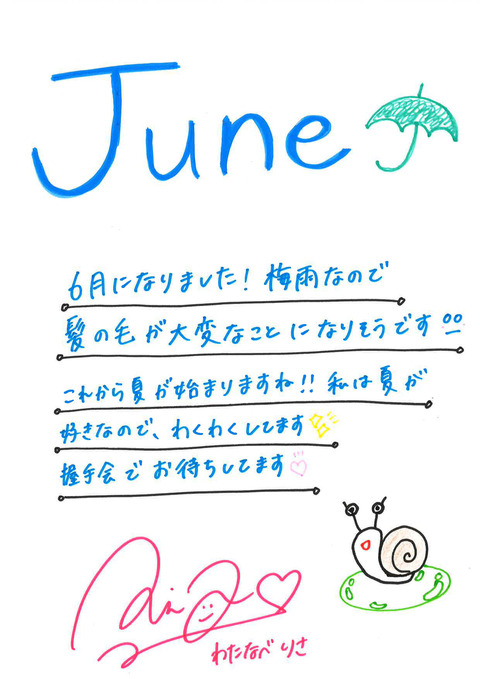 June
6月になりました!梅雨なので
髪の毛が大変なことになりそうです
これから夏が始まりますね!!私は夏が
好きなので、わくわくしてます
握手会でお待ちしてます
わたなべ りさ